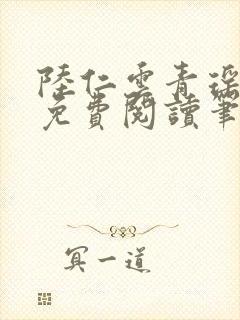 陸仁雲青瑤
免費閱讀筆
冥一道